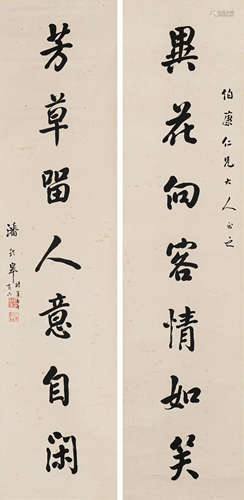 伯蘅仁兄大人正之
異花向客情如笑
芳草留人意自闲
潘龄皋